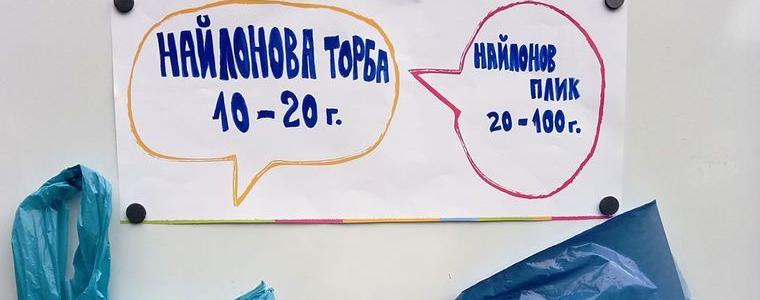 НАЙЛОНОВА ТОРБА
10-20 г.
НАЙЛОНОВ
ПЛИК
20-100 г.